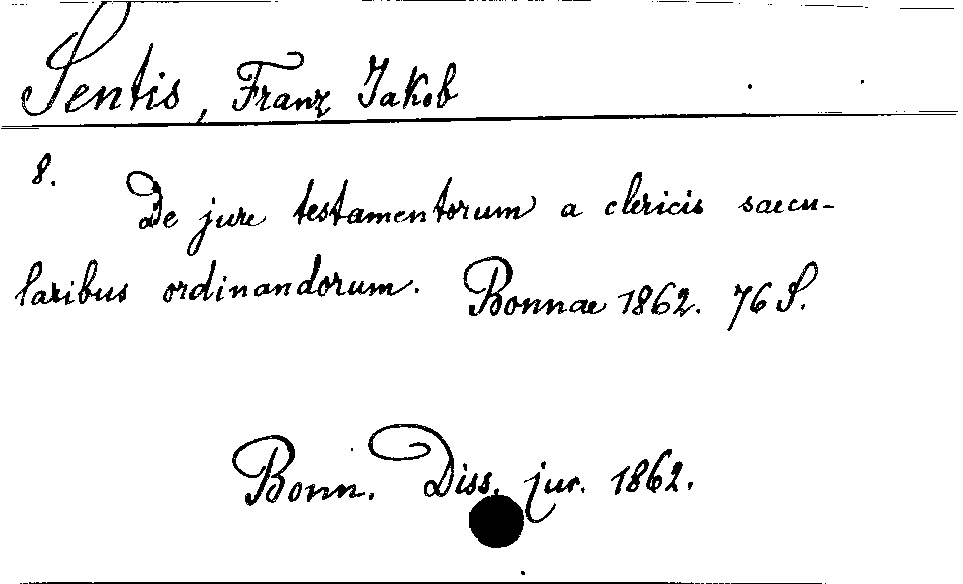 Sentis, Franz Jakob
8.
De jure testamentorum a clericis saecu-
laribus ordinandorum. Bonnae 1862. 76 S.
Bonn. Diss. jur. 1862.